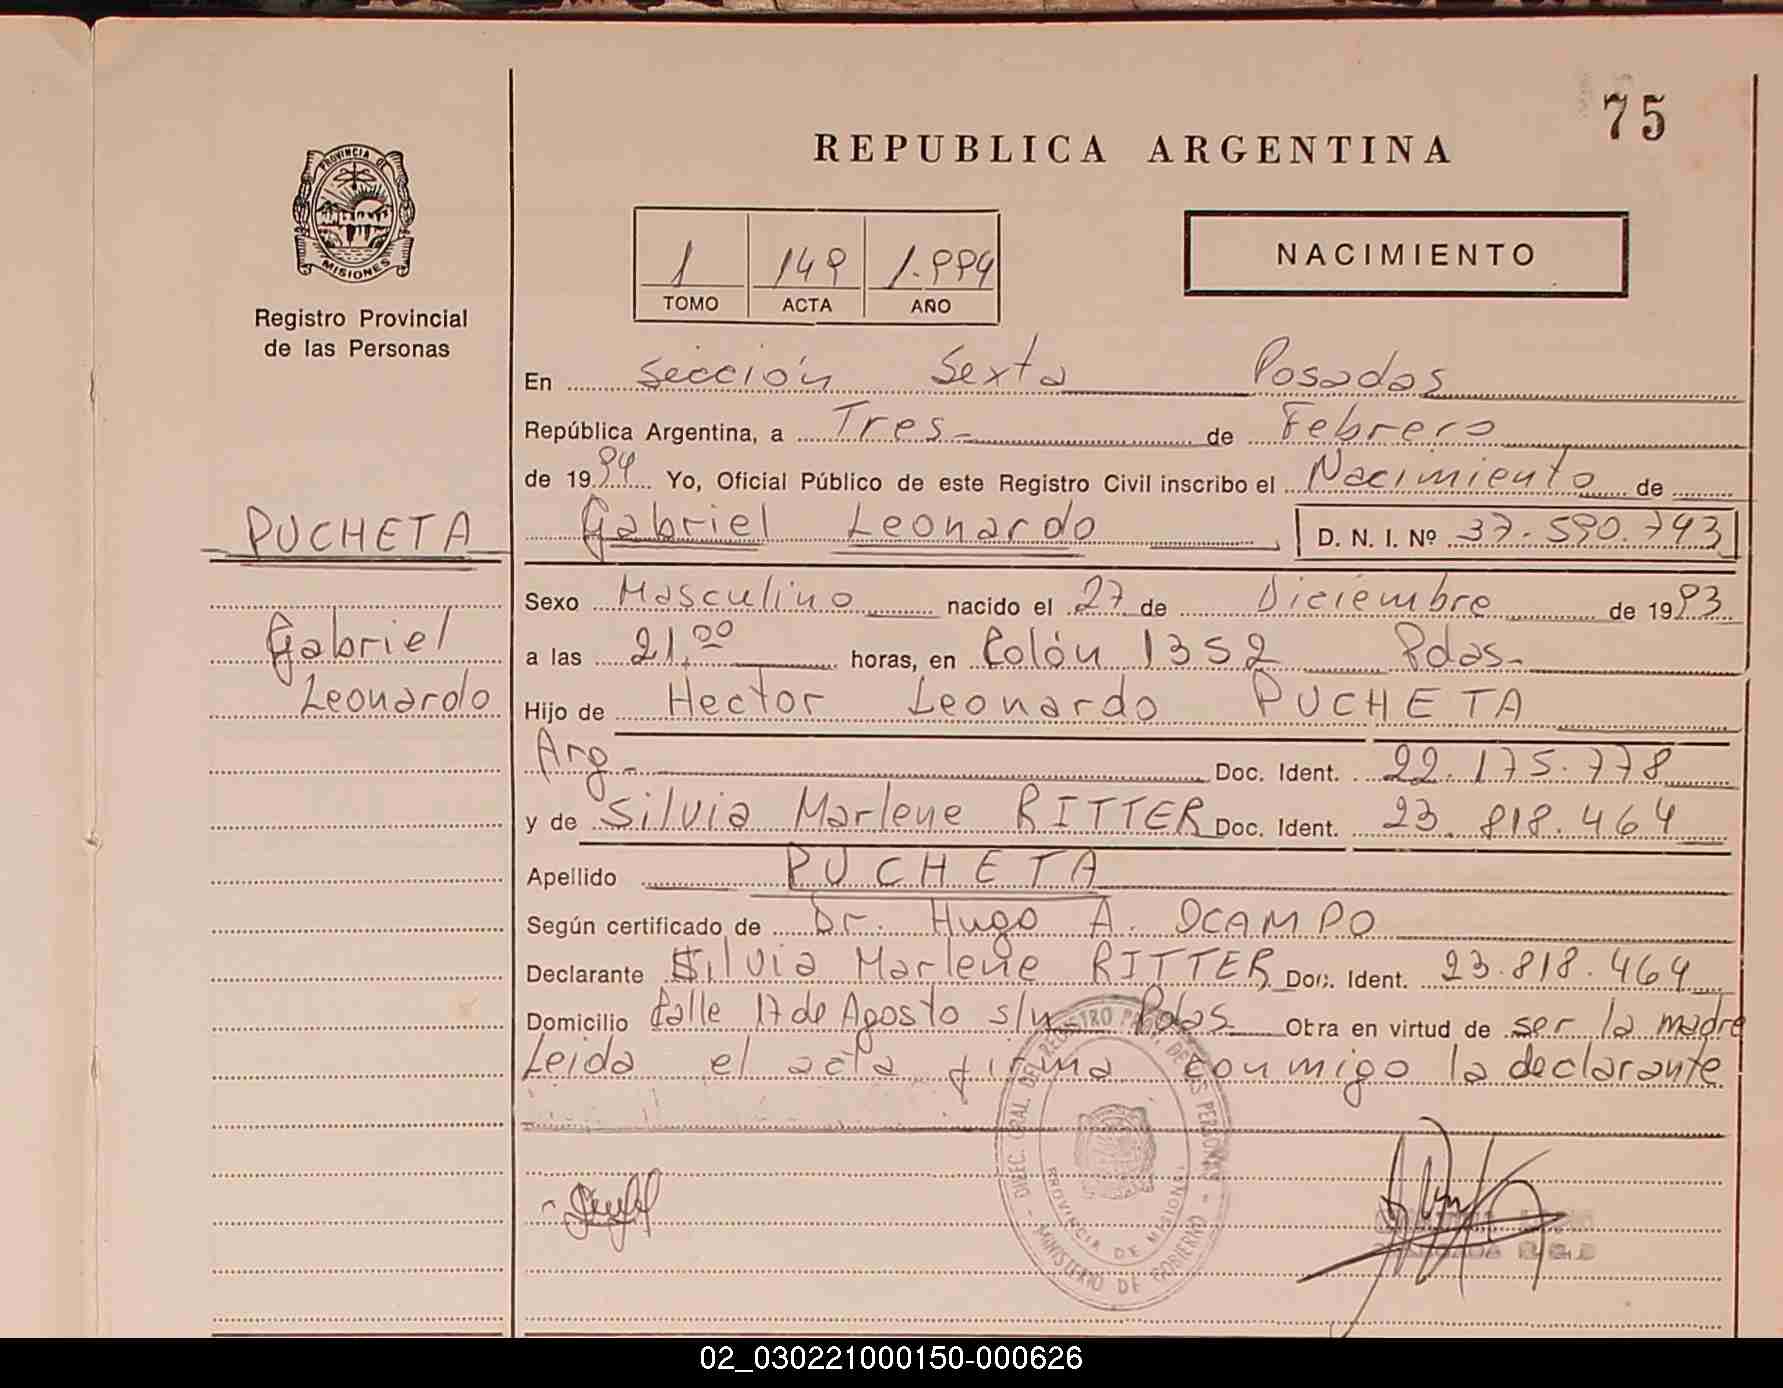 75
REPUBLICA ARGENTINA
PROVINCIA DE
MISIONES
Registro Provincial
de las Personas
1 149 1.994
TOMO ACTA AÑO
NACIMIENTO
En Sección Sexta Posadas
República Argentina, a Tres de Febrero
de 1994 Yo, Oficial Público de este Registro Civil inscribo el Nacimiento de
PUCHETA
Gabriel Leonardo D. N. I. Nº 37.590.743
Sexo Masculino nacido el 27 de Diciembre de 1993
Gabriel
Leonardo
a las 21,00 horas, en Colón 1352 Pdas-
Hijo de Hector Leonardo PUCHETA
Arg - Doc. Ident. 22.175.778
y de Silvia Marlene RITTER Doc. Ident. 23.818.464
Apellido PUCHETA
Según certificado de Dr. Hugo A. OCAMPO
Declarante Silvia Marlene RITTER Doc. Ident. 23.818.464
Domicilio Calle 17 de Agosto s/n Pdas Otra en virtud de ser la madre
Leida el acta firma conmigo la declarante
DIREC. GRAL. DEL REGISTRO PROV. DE LAS PERSONAS
PROVINCIA DE MISIONES
MINISTERIO DE GOBIERNO
02_030221000150-000626